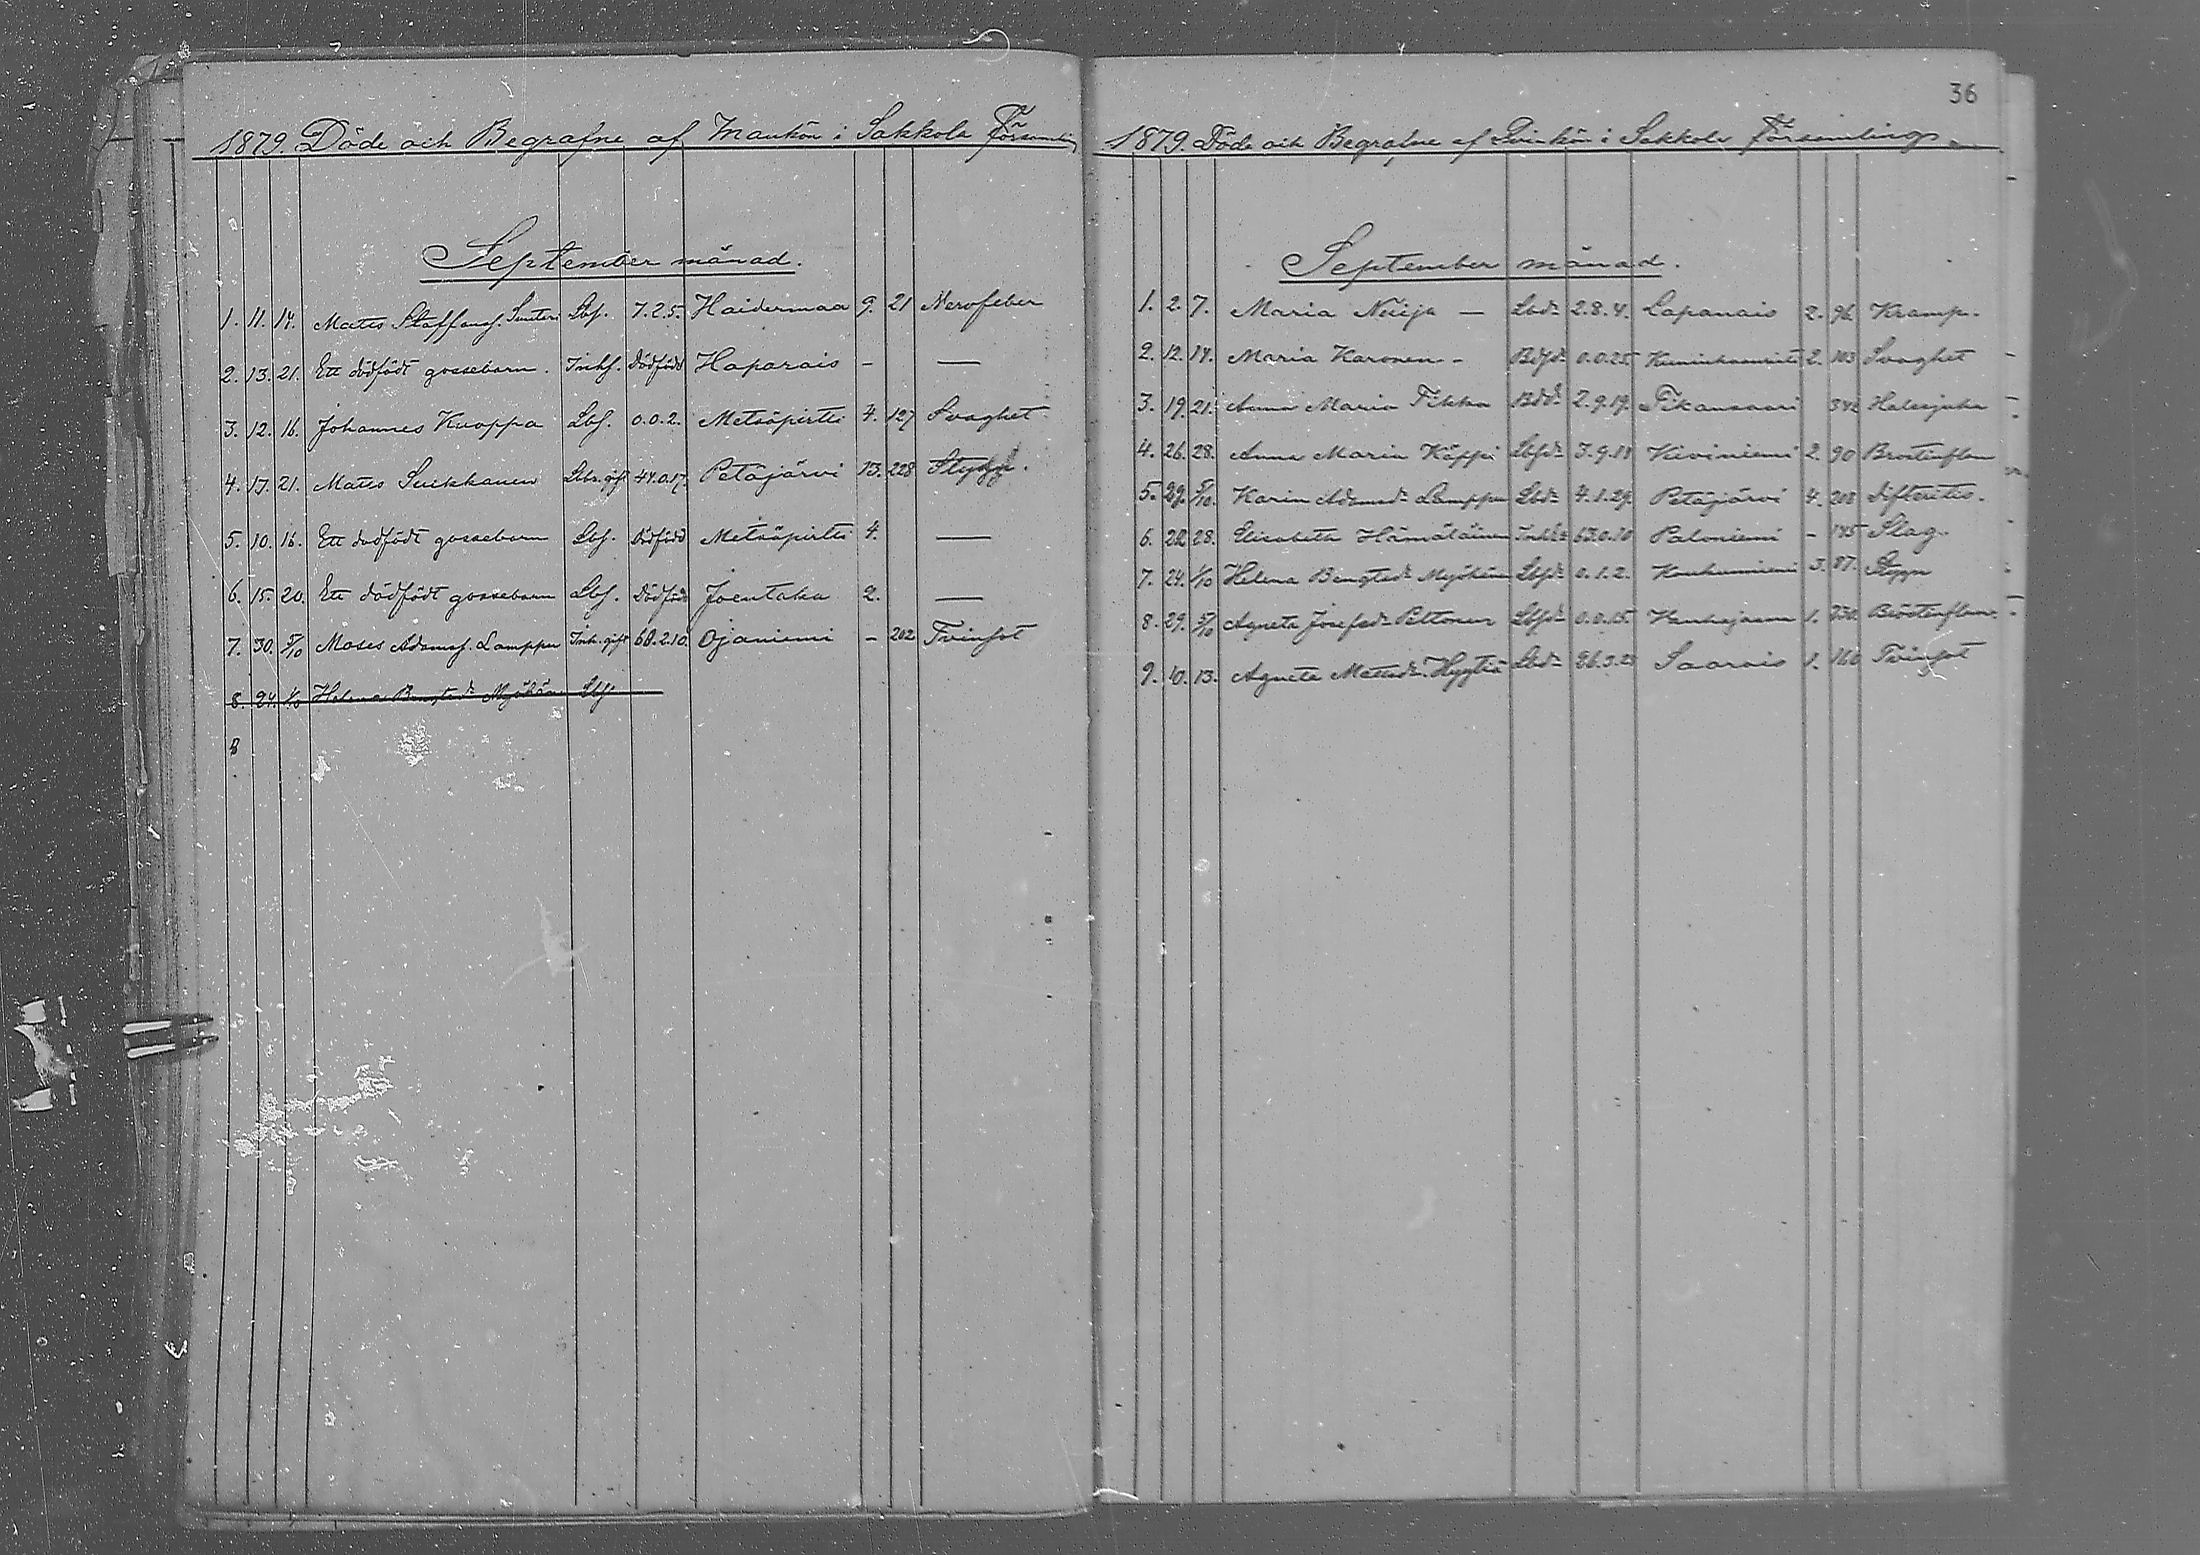 1879. Döde och Begrafne af Mankön i Sakkola Församling
September månad.
1. 11. 14. Mats Staffansf. Lbf. 7.2.5. Haidermaa 9. 21 Nervfeber
2. 13. 21. Ett dödfödt gossebarn. Inhf. Dödfödd Haparais - —
3. 12. 16. Johannes Kuoppa Lbf. 0.0.2. Metsäpirtti 4. 127 Svaghet
4. 17. 21. Mats Suikkanen gift 44.0.17. Petäjärvi 13. 228 Stygn.
5. 10. 16. Ett dödfödt gossebarn Lbf. Dödfödd Metsäpirtti 4. —
6. 15. 20. Ett dödfödt gossebarn Lbf. Dödfödd Joentaka 2. —
7. 30. 5/10 Moses Adamsf. Lamppu Inh. gift 68.2.10. Ojaniemi - 202 Tvinsot
8. 24. 1/10 Helena Bengtsdr Myöhänen Lbf.
8
36
1879. Döde och Begrafne af Qvinkön i Sakkola Församling
September månad.
1. 2. 7. Maria Neuija — Lbdr 2.8.4. Lapanais 2. 96 Kramp.
2. 12. 14. Maria Karonen - 0.0.25 2. 103 Svaghet
3. 19. 21. Anna Maria Tikka 2.9.19. Tikansaari 342 Halssjuka
4. 26. 28. Anna Maria Käppi Lbfdr 3.9.18 Kiviniemi 2. 90 Bröstinflam
5. 29. 5/10 Karin Adamsdr Lamppu Lbdr 4.1.29. Petäjärvi 4. 208 difteritis.
6. 28. Elisabeth Hämäläinen 63.0.10 Paloniemi - 145 Slag.
7. 24. 1/10 Helena Bengtsdr Myöhänen Lbfdr 0.1.2. 3. 87. Stygn
8. 29. 5/10 Agneta Josefsdr Peltonen Lbfdr 0.0.15. 1. 230. Bröstinflam.
9. 10. 13. Agneta Mattsdr Hyytiä Lbdr Saarois 1. 160 Tvinsot